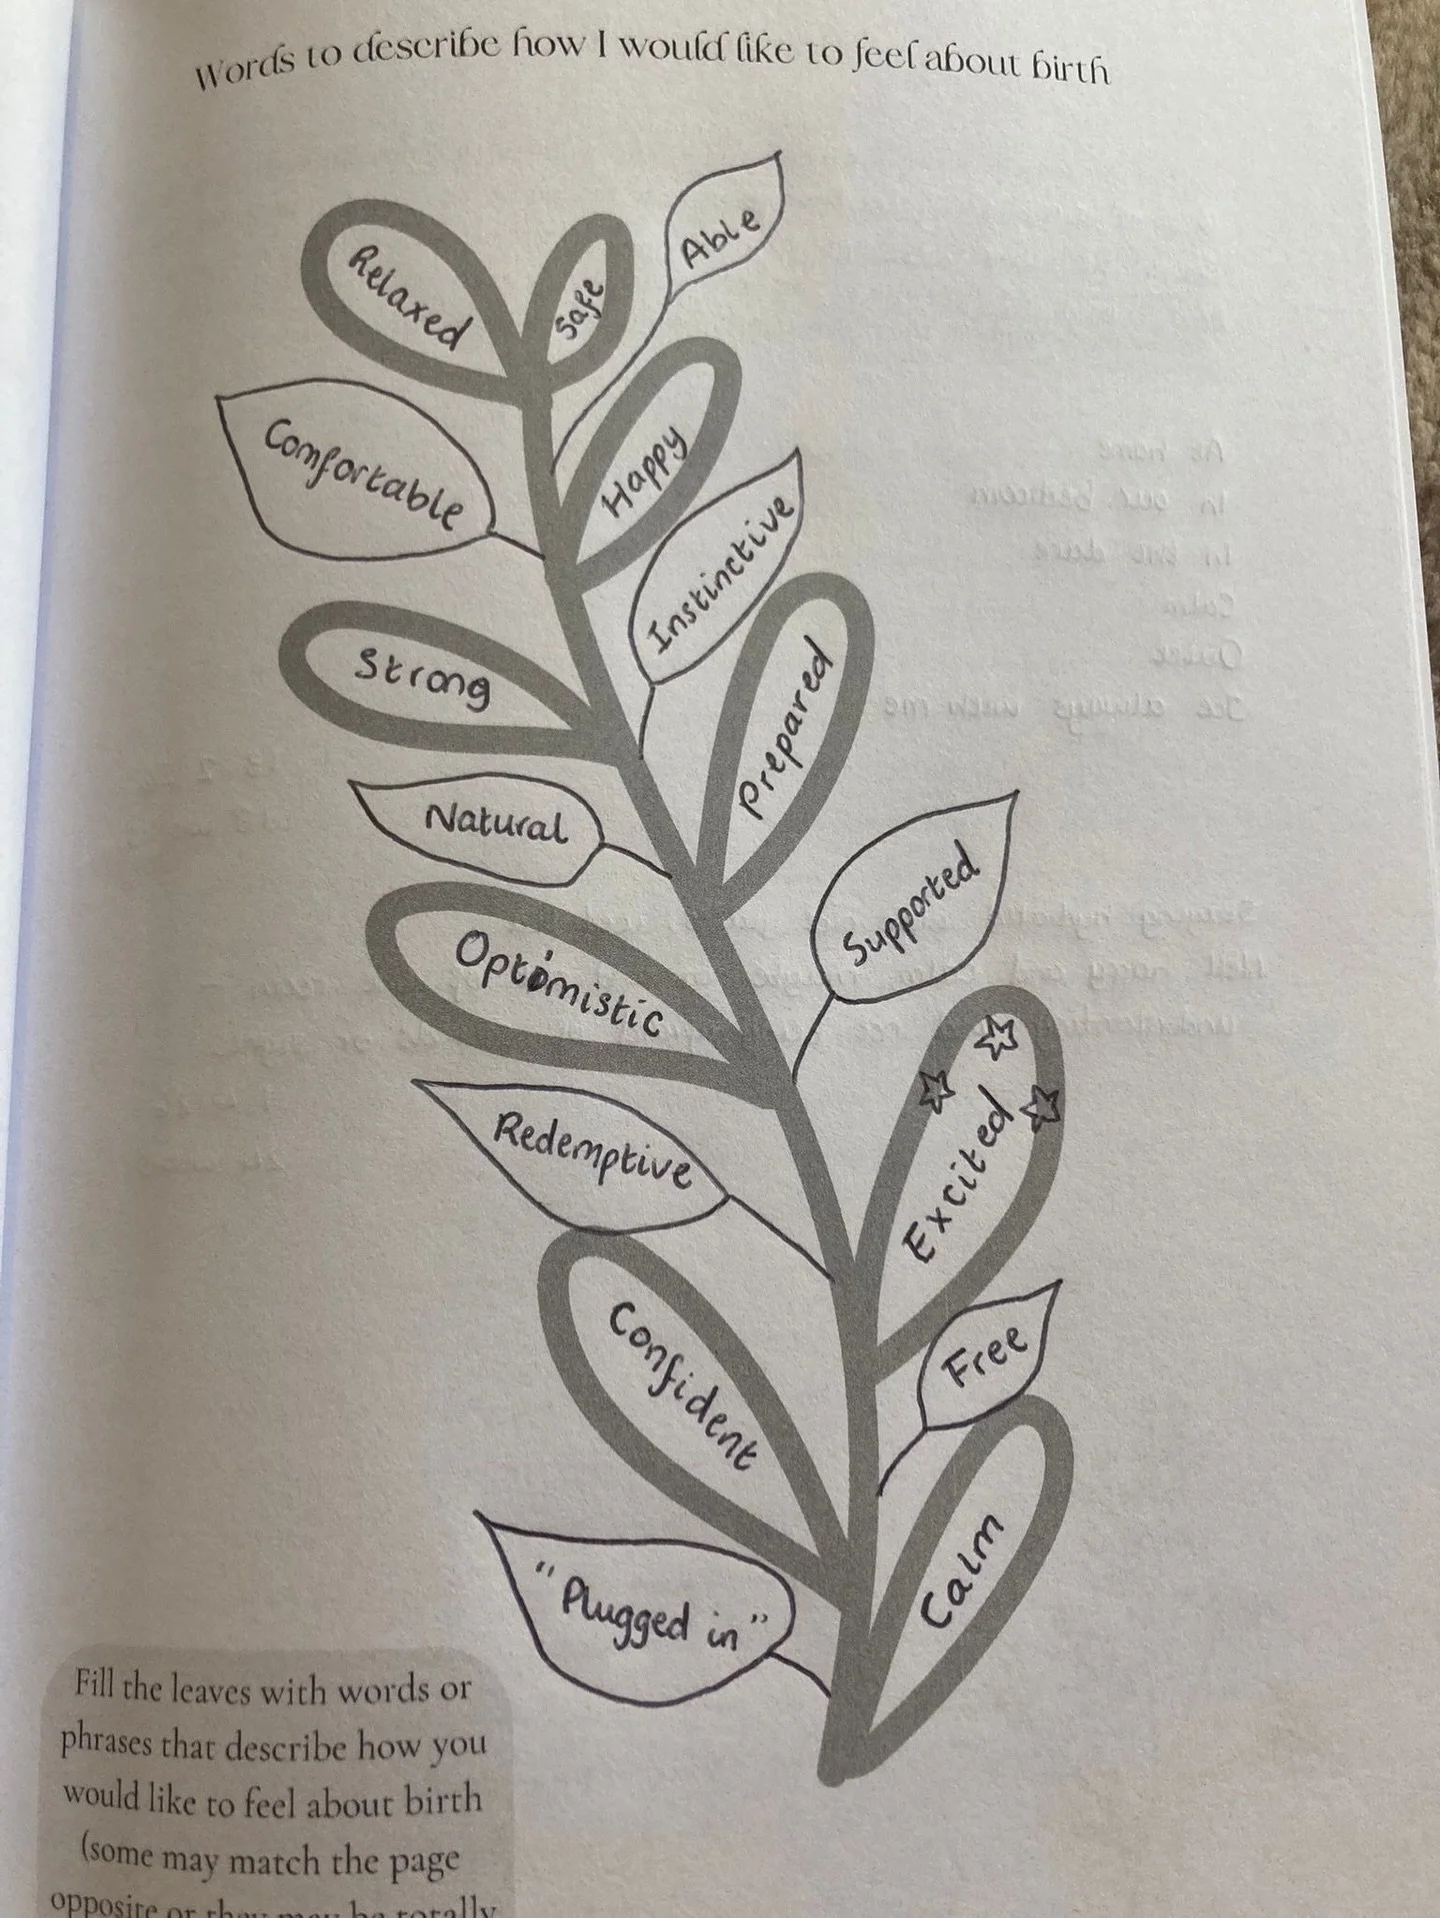 Words to describe how I would like to feel about birth
Able
Relaxed
Safe
Comfortable
Happy
Instinctive
Strong
Prepared
Natural
Supported
Optimistic
Redemptive
Excited
Confident
Free
"Plugged in"
Calm
Fill the leaves with words or
phrases that describe how you
would like to feel about birth
(some may match the page
opposite or they may be totally